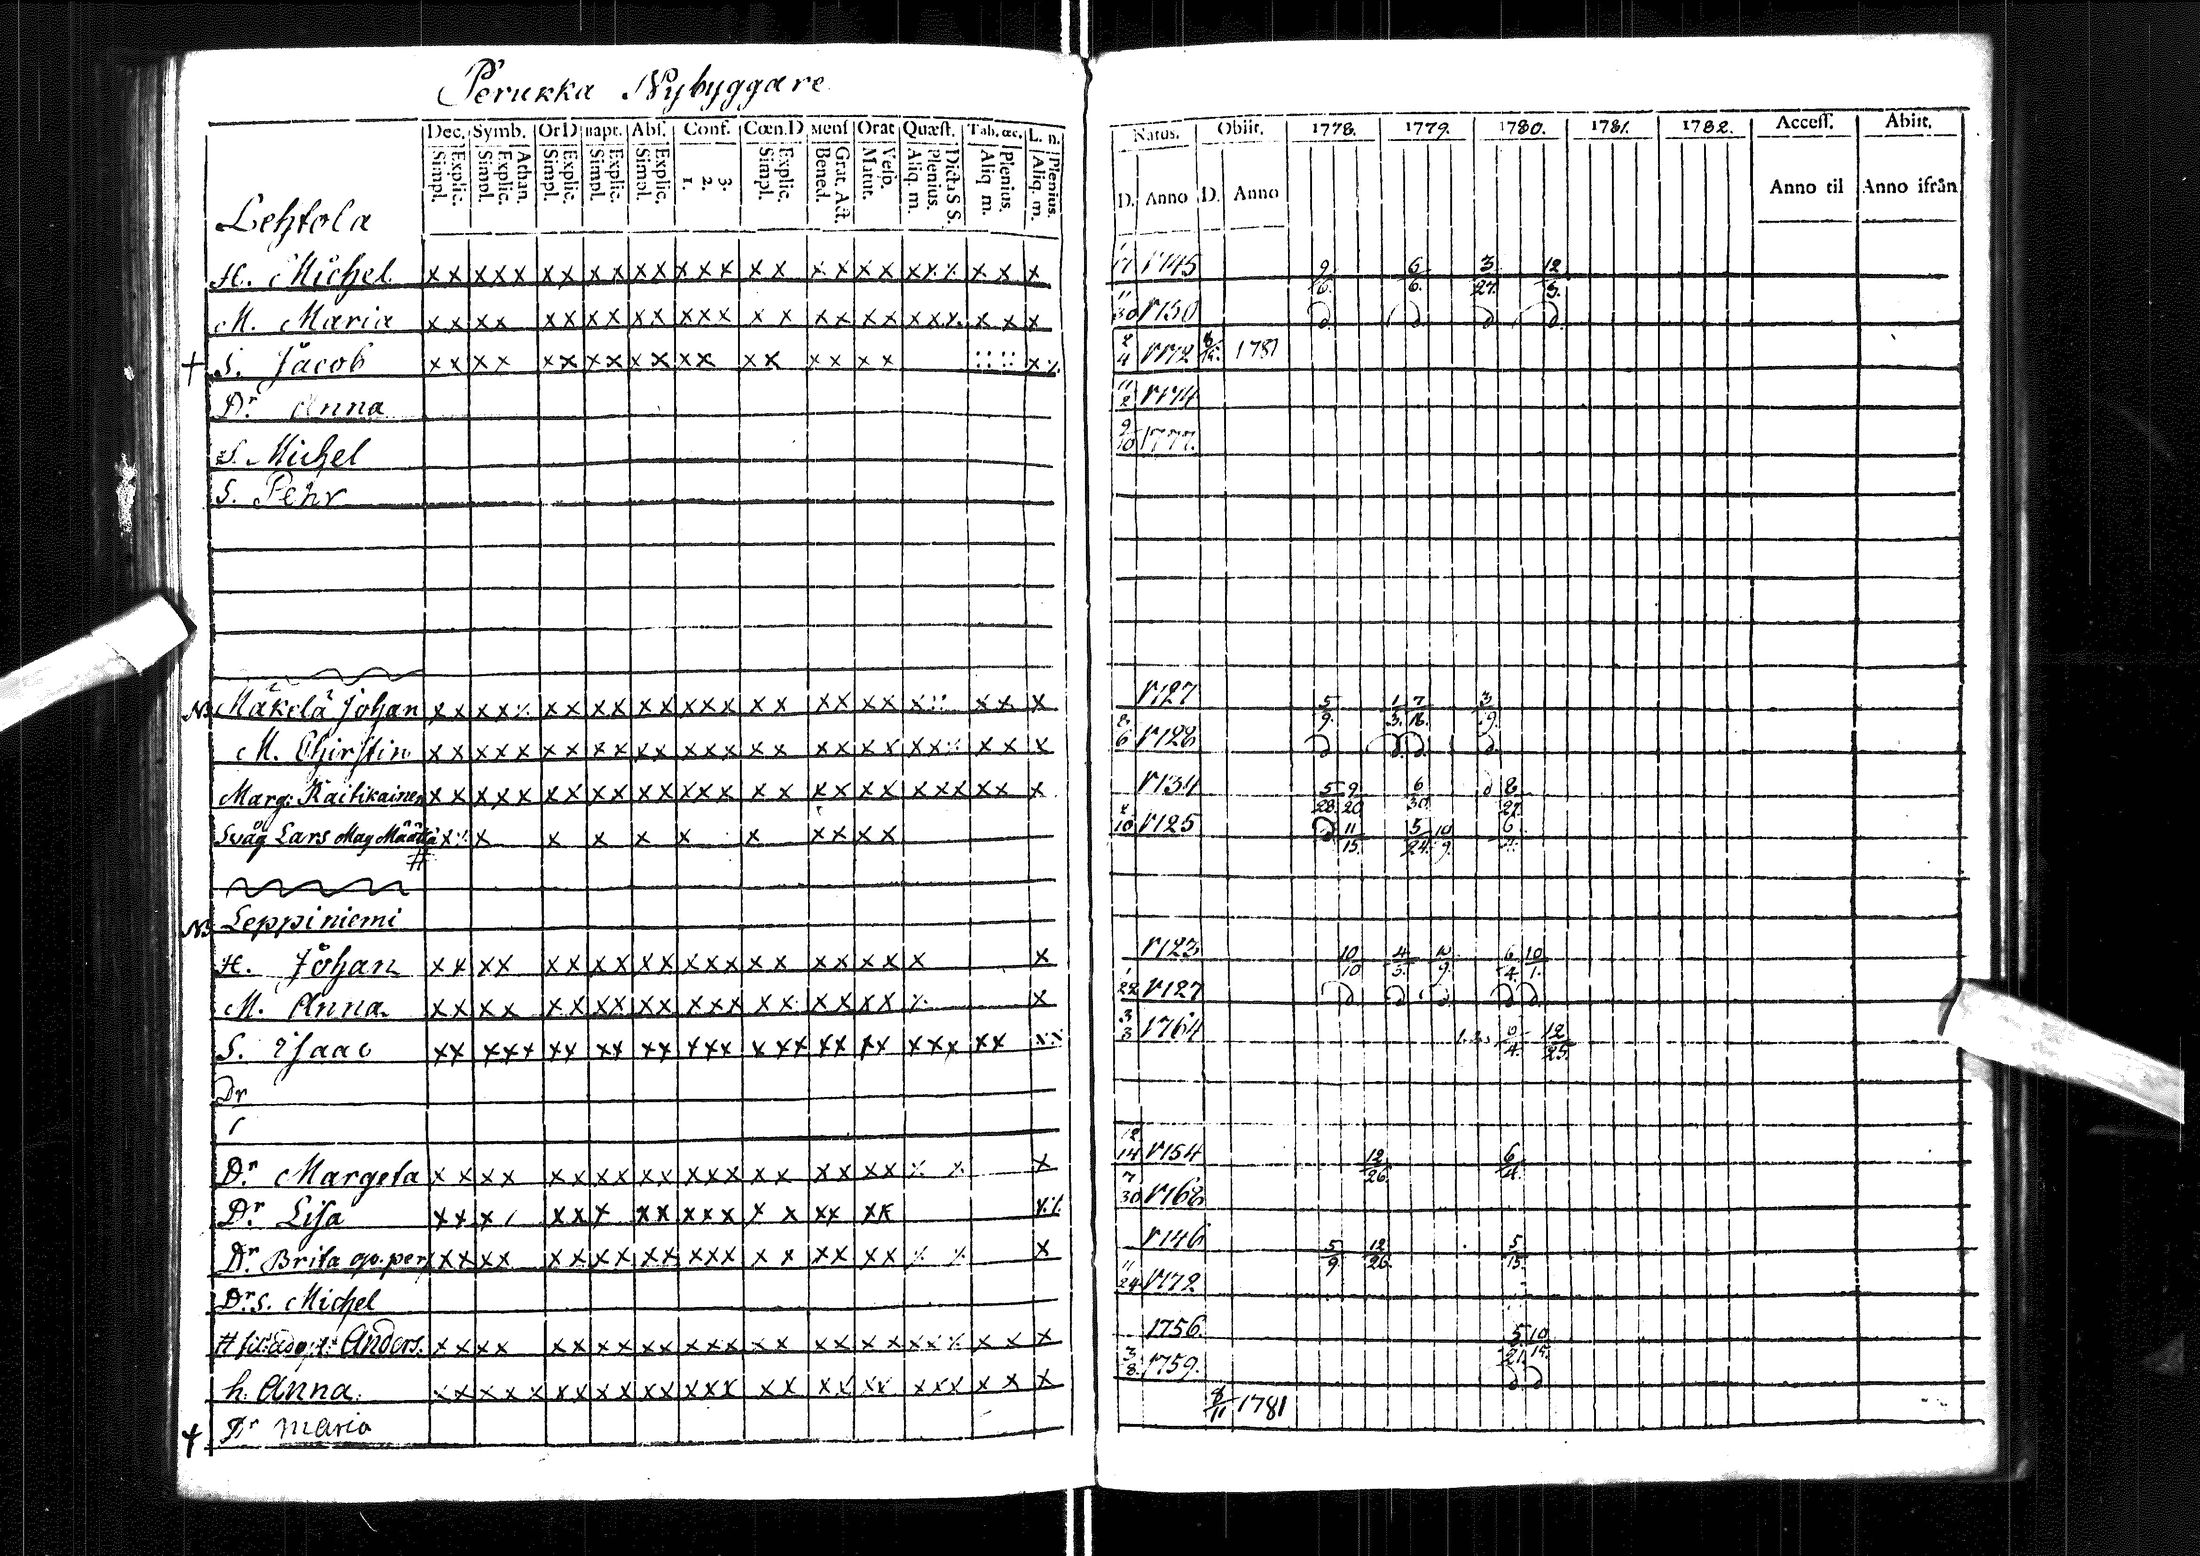 Perukka Nybyggare
Dec. Symb. Or D Bapt. Abs. Conf. Cœn. D Mens Orat Quæst. Tab. œc. L. n.
Simpl. Explic. Simpl. Explic. Athan. Simpl. Explic. Simpl. Explic. Simpl. Explic. 1. 2. 3. Simpl. Explic. Bened. Grat. Act. Matut. Vesp. Aliq. m. Plenius. Dicta S S. Aliq m. Plenius. Aliq. m. Plenius.
Natus. Obiit. 1778. 1779. 1780. 1781. 1782. Access. Abiit.
D. Anno D. Anno Anno til Anno ifrån
Lehtola
H. Michel x x x x x x x x x x x x x x x x x x x x x ⁒ ⁒ x x x 1745 9/6. 6/6. 3/27. 12/3.
M. Maria x x x x x x x x x x x x x x x x x x x x x ⁒ x x x 11/30 1750
† S. Jacob x x x x x x x x x x x x x x x x x x x ⁒ 2/4 1772 8/15. 1781
Dr. Anna 11/2 1774
S. Michel 9/10 1777.
S. Pehr
NB Mäkelä Johan x x x x ⁒ x x x x x x x x x x x x x x x x x x x 1727 5/9. 1/3. 7/18. 3/9.
M. Chirstin x x x x x x x x x x x x x x x x x x x x x x ⁒ x x x 2/6 1728
Marg: Kailikainen x x x x x x x x x x x x x x x x x x x x x x x x x x 1734 5/28 9/20 6/30 8/27
Swåg Lars Mag Määttä x ⁒ x x x x x x x x x x 2/10 1725 11/15. 5/24. 10/9.
#
NB Leppiniemi
H. Johan x x x x x x x x x x x x x x x x x x x x x 1723 10/10 4/3. 6/4 10/1.
M. Anna x x x x x x x x x x x x x x x x x x x ⁒ x 1/22 1727
S. Isaac x x x x x x x x x x x x x x x x x x x x x x x x x x 3/3 1764 12/25
Dr
Dr. Margeta x x x x x x x x x x x x x x x x x x x ⁒ ⁒ x 12/14 1754 12/26 6/4
Dr. Lisa x x x x x x x x x x x x x x x x x 7/30 1768
Dr. Brita x x x x x x x x x x x x x x x x x x x ⁒ ⁒ x 1746 5/9 12/26 5/15
Dr. s. Michel 11/24 1772
# Anders. x x x x x x x x x x x x x x x x x x x x x ⁒ x x x 1756 5/21 10/15.
h. Anna. x x x x x x x x x x x x x x x x x x x x x x x x x x 3/8. 1759.
† Dr maria 8/11 1781